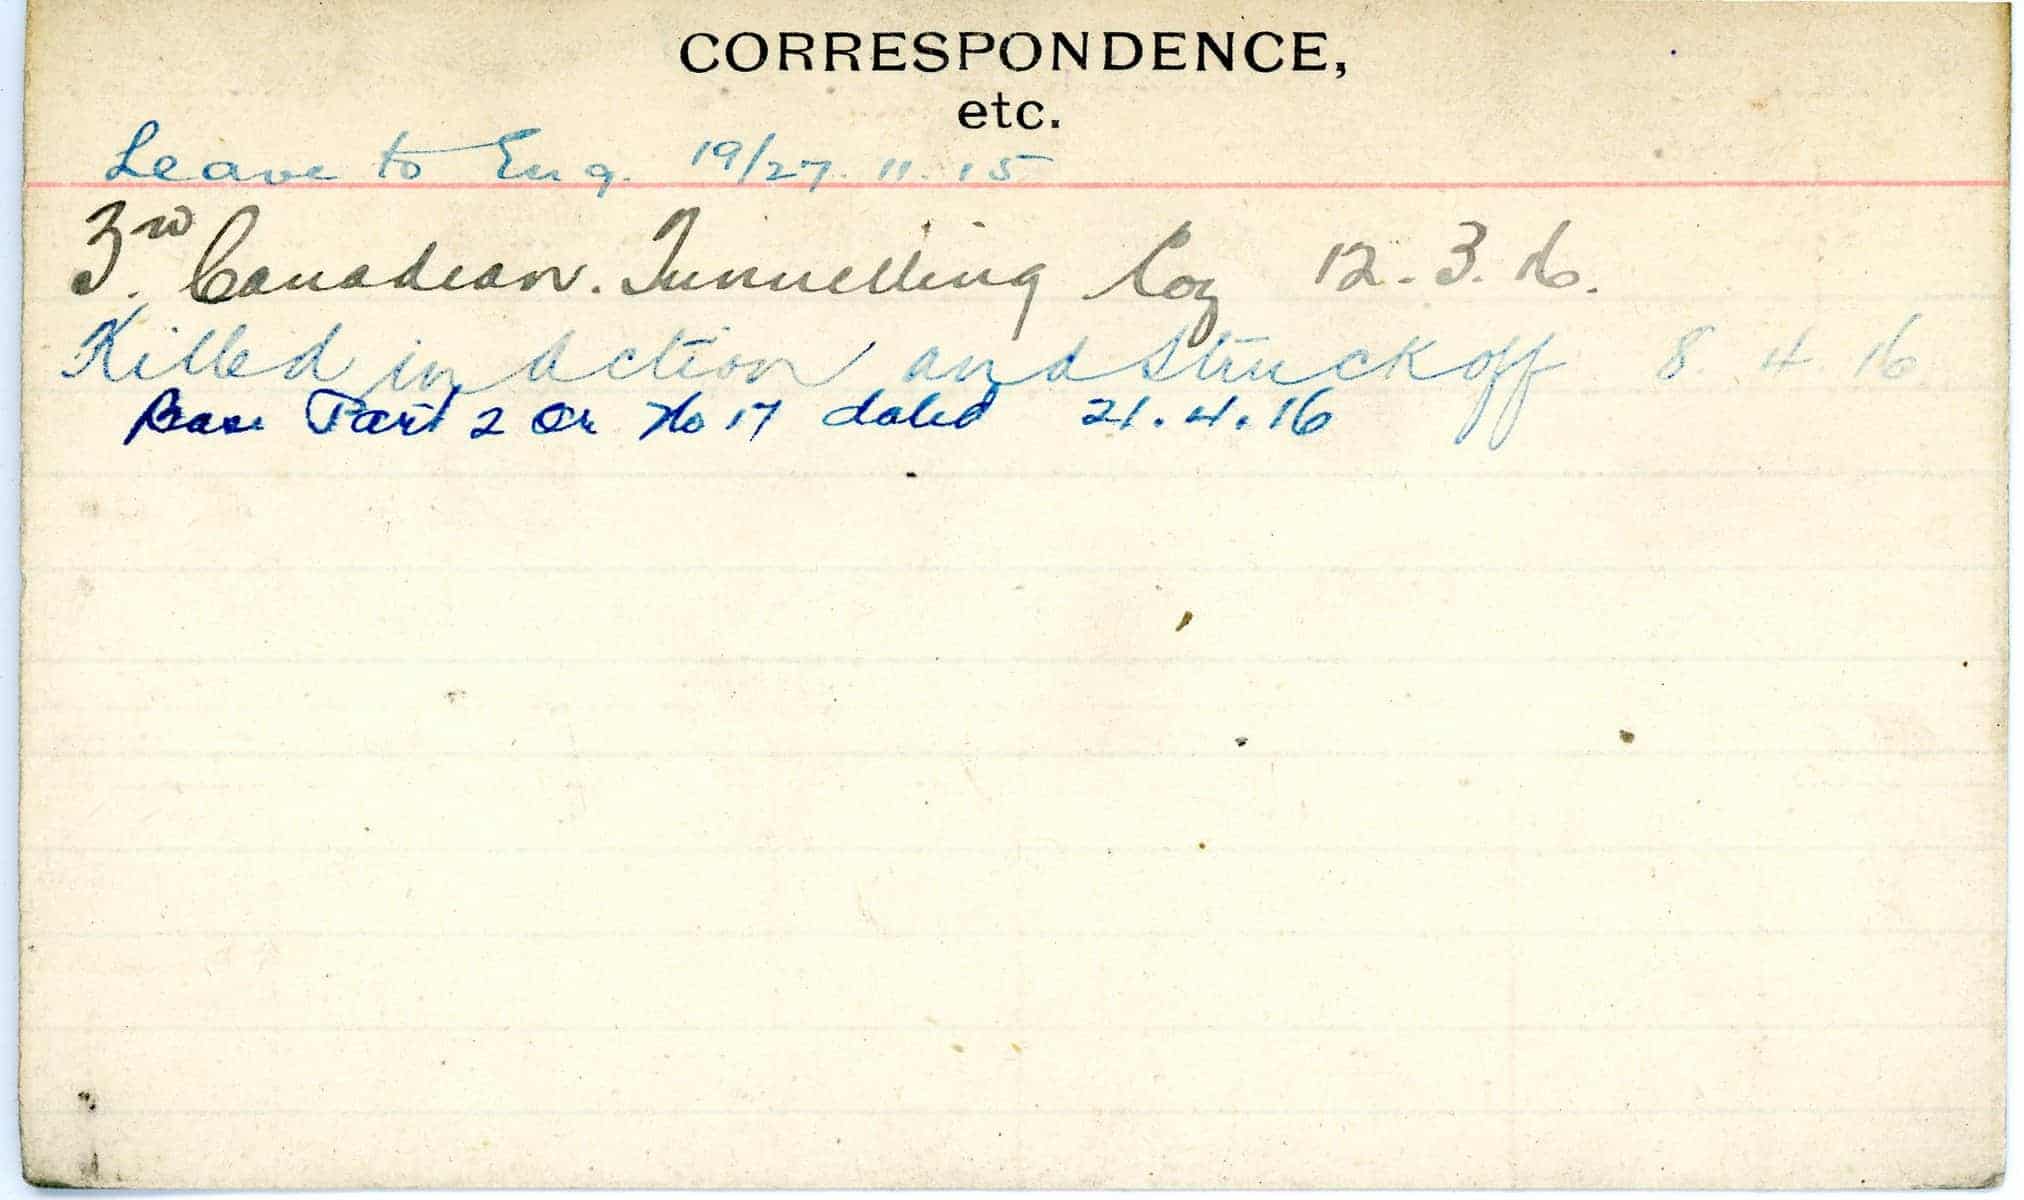 CORRESPONDENCE,
etc.
Leave to Eng. 19/27. 11. 15
3rd Canadian. Tunnelling Coy 12. 3. 16.
Killed in action and struck off 8. 4. 16
Base Part 2 Or No 17 dated 21. 4. 16